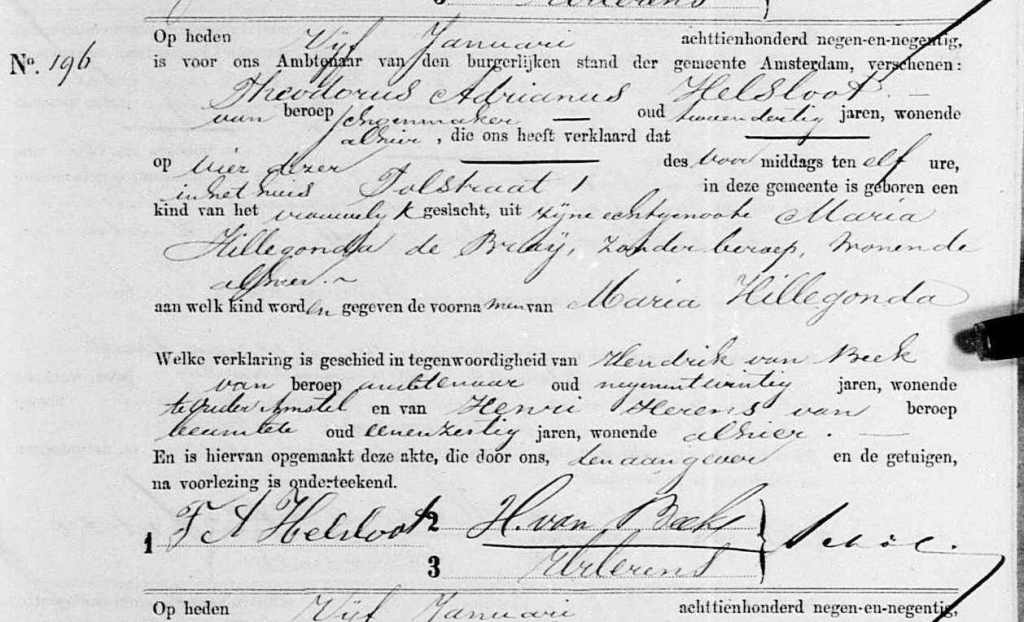 3 Herens
Op heden Vijf Januari achttienhonderd negen-en-negentig,
No. 196 is voor ons Ambtenaar van den burgerlijken stand der gemeente Amsterdam, verschenen:
Theodorus Adrianus Helsloot.
van beroep schoenmaker oud tweeendertig jaren, wonende
alhier, die ons heeft verklaard dat
op vier dezer des voor middags ten elf ure,
in het huis Tolstraat 1 in deze gemeente is geboren een
kind van het vrouwelijk geslacht, uit zijne echtgenoote Maria
Hillegonda de Braaij, zonder beroep, wonende
alhier.
aan welk kind worden gegeven de voornamen van Maria Hillegonda
Welke verklaring is geschied in tegenwoordigheid van Hendrik van Beek
van beroep ambtenaar oud negenentwintig jaren, wonende
te Ouder Amstel en van Henri Herens van beroep
beambte oud eenenzestig jaren, wonende alhier.
En is hiervan opgemaakt deze akte, die door ons, den aangever en de getuigen,
na voorlezing is onderteekend.
1 T A Helsloot 2 H. van Beek
3 HHerens
Op heden Vijf Januari achttienhonderd negen-en-negentig,